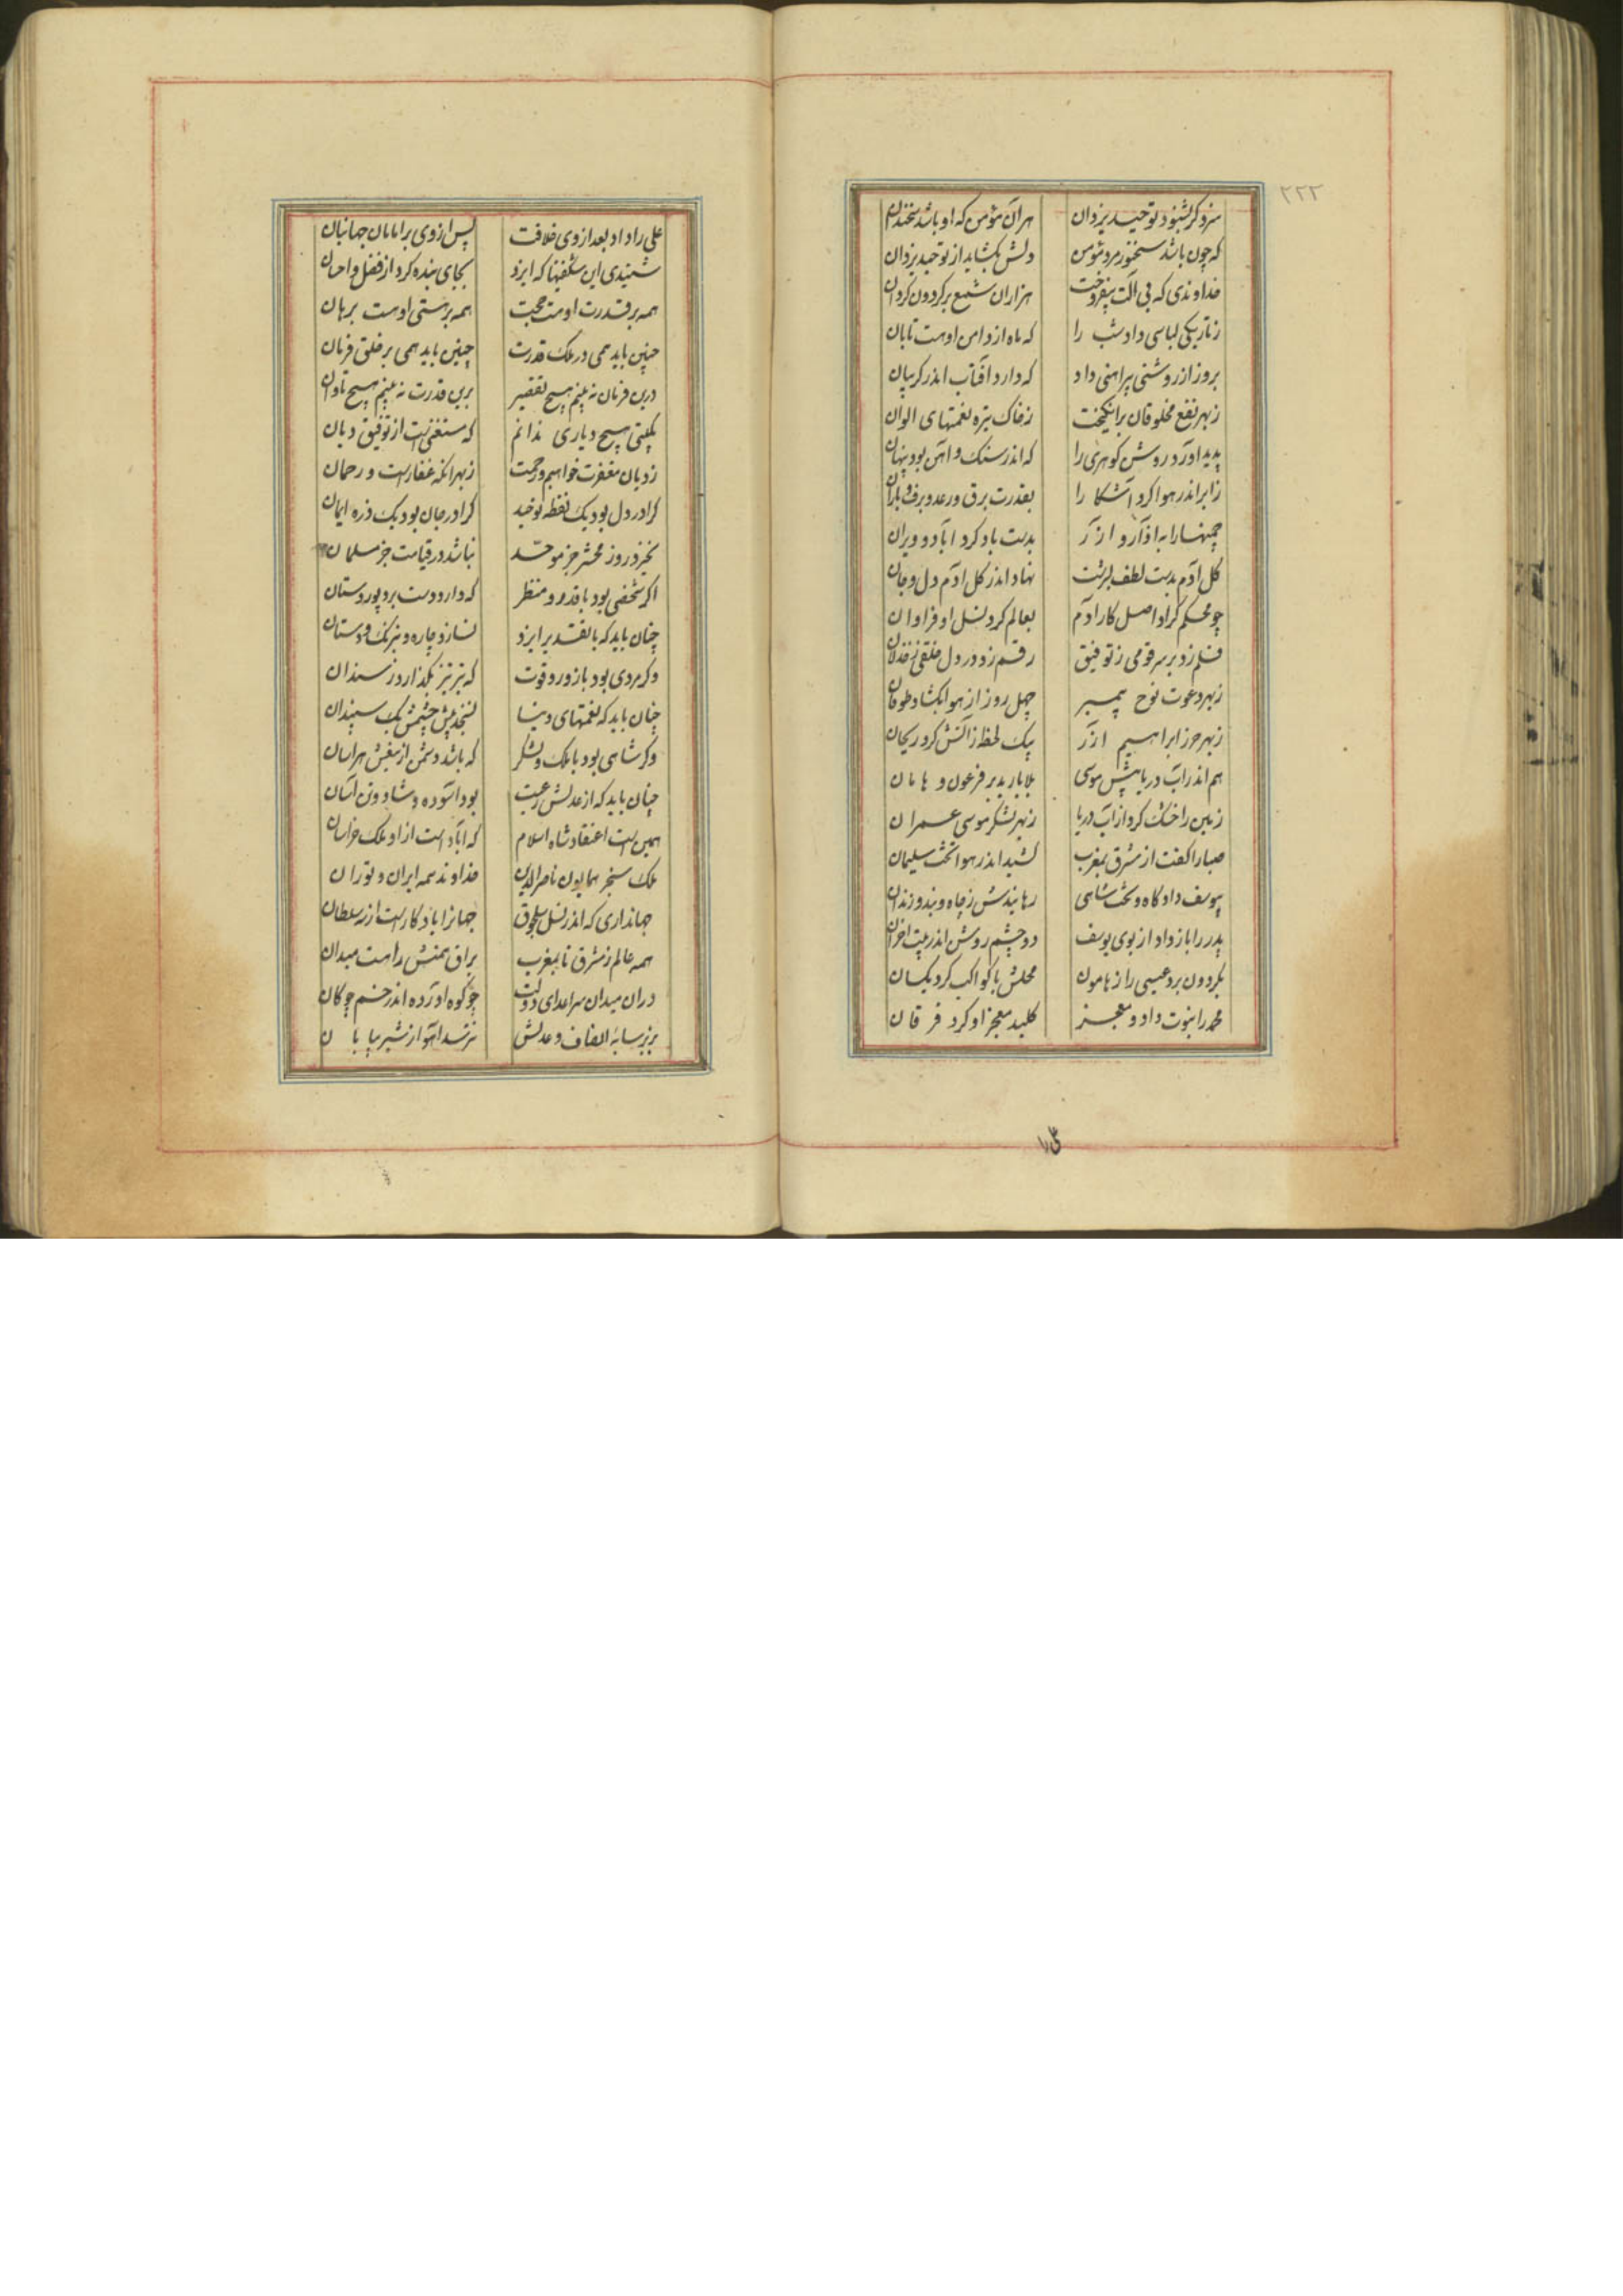 ۲۲۲
سزد کر بشنود توحید یزدان هر آن مؤمن که او باشد سخندان
که چون باشد سخنور مرد مؤمن دلش بکشاید از توحید یزدان
خداوندی که بی آلت بیفروخت هزاران شمع بر کردون کردان
ز تاریکی لباسی داد شب را که ماه از دامن اوست تابان
بروز از روشنی پیراهنی داد که دارد آفتاب اندر کریبان
ز بهر نفع مخلوقان برانکیخت ز خاک تیره نعمتهای الوان
پدید آورد روشن کوهری را که اندر سنک و آهن بود پنهان
ز ابر اندر هوا کرد آشکا را بقدرت برق و رعد و برف و باران
چمنها را به آذار و آزر بدست باد کرد آباد و ویران
کل آدم بدست لطف بسرشت نهاد اندر کل آدم دل و جان
چو محکم کرد اصل کار آدم بعالم کرد نسل او فراوان
قلم زد بر سر قومی ز توفیق رقم زد در دل خلقی ز خذلان
ز بهر دعوت نوح پیمبر چهل روز از هوا بکشاد طوفان
ز بهر حرز ابراهیم آزر بیک لحظه ز آتش کرد ریحان
هم اندر آب دریا پیش موسی بلا بارید بر فرعون و هامان
زمین را خشک کرد از آب دریا ز بهر لشکر موسی عمران
صبا را کفت از مشرق بمغرب کشید اندر هوا تخت سلیمان
بیوسف داد کاه و تخت شاهی رهانیدش ز چاه و بند و زندان
پدر را باز داد از بوی یوسف دو چشم روشن اندر بیت احزان
بکردون برد عیسی را ز هامون محلش با کواکب کرد یکسان
محمد را نبوت داد و معجز کلید معجز او کرد فرقان
علی را
علی را داد بعد از وی خلافت پس از وی بر امامان جهانبان
شنیدی این شکفتیها که ایزد بجای بنده کرد از فضل و احسان
همه بر قدرت اوست حجت همه بر هستی اوست برهان
چنین باید همی در ملک قدرت چنین باید همی بر خلق فرمان
درین فرمان نه بینم هیچ تقصیر برین قدرت نه بینم هیچ تاوان
بکیتی هیچ دیاری ندانم که مستغنی است از توفیق دیان
ز دیان مغفرت خواهیم و رحمت ز بهر آنکه غفار است و رحمان
کرا در دل بود یک نقطه توحید کرا در جان بود یک ذره ایمان
نخیزد روز محشر جز موحد نباشد در قیامت جز مسلمان
اکر شخصی بود با قدر و منظر که دارد دست برد پور دستان
چنان باید که با تقدیر ایزد نسازد چاره و نیرنک و دستان
وکر مردی بود با زور و قوت که تیر تیز بکذارد ز سندان
چنان باید که نعمتهای دنیا نسنجد پیش چشمش یک سپندان
وکر شاهی بود با ملک و لشکر که باشد دشمن از تیغش هراسان
چنان باید که از عدلش رعیت بود آسوده و شاد و تن آسان
همین است اعتقاد شاه اسلام که آباد است از او ملک خراسان
ملک سنجر همایون ناصرالدین خداوند همه ایران و توران
جهانداری که اندر نسل سلجوق جهانرا یادکار است از نه سلطان
همه عالم ز مشرق تا بمغرب براق همتش را هست میدان
در آن میدان سر اعدای دولت چو کوه آورده اندر خم چوکان
بزیر سایۀ انصاف و عدلش نترسد آهو از شیر بیابان